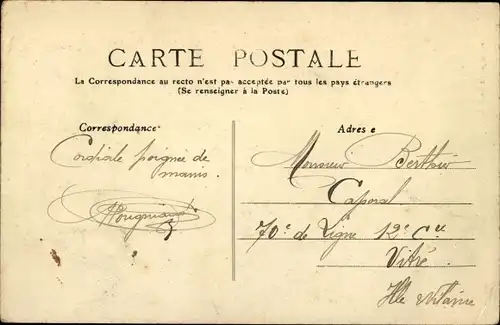 CARTE POSTALE
La Correspondance au recto n'est pas acceptée par tous les pays étrangers
(Se renseigner à la Poste)
Correspondance
Cordiale poignée de
mains.
Adresse
Monsieur Berthier
Caporal
70e de Ligne 12e Cie
Vitré
Ille et Vilaine